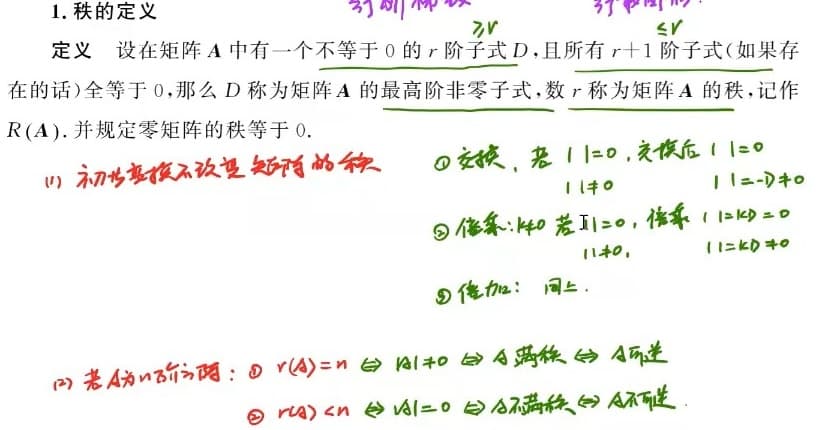 行阶梯
行最简形
1. 秩的定义
≥r ≤r
定义 设在矩阵 A 中有一个不等于 0 的 r 阶子式 D,且所有 r+1 阶子式(如果存
在的话)全等于 0,那么 D 称为矩阵 A 的最高阶非零子式,数 r 称为矩阵 A 的秩,记作
R(A). 并规定零矩阵的秩等于 0.
(1) 初等变换不改变矩阵的秩
① 交换、若 | |=0,交换后 | |=0
| |≠0 | |=-D≠0
② 倍乘: k≠0 若 | |=0,倍乘 | |=kD=0
| |≠0, | |=kD≠0
③ 倍加: 同上.
(2) 若A为n阶方阵: ① r(A)=n ⇔ |A|≠0 ⇔ A满秩 ⇔ A可逆
② r(A)<n ⇔ |A|=0 ⇔ A不满秩 ⇔ A不可逆.